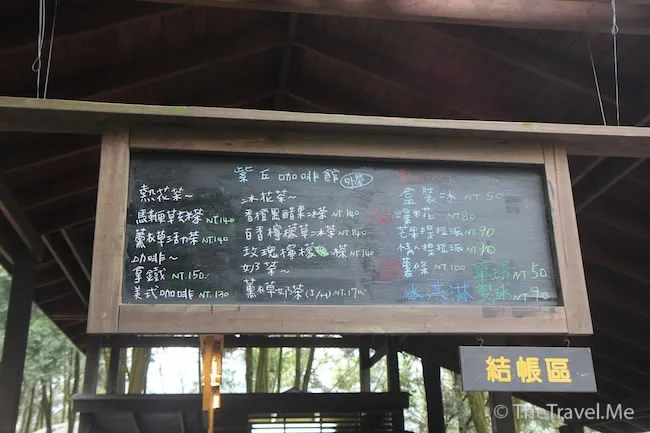 紫丘咖啡館 外帶
熱花茶~
馬鞭草去米茶 NT.140
薰衣草活力茶 NT.140
咖啡~
拿鐵 NT.150
美式咖啡 NT.130
冰花茶~
香橙黑醋栗冰茶 NT.140
百香檸檬冰茶 NT.140
玫瑰檸檬 茶 NT.140
奶茶~
薰衣草奶茶 (I/H) NT.170
盒裝冰 NT 50
爆米花 NT 80
芒果提拉派 NT.90
情人提拉派 NT.90
薯條 NT.100
單球 NT 50
冰淇淋 雙球 NT 90
結帳區
© TheTravel.Me